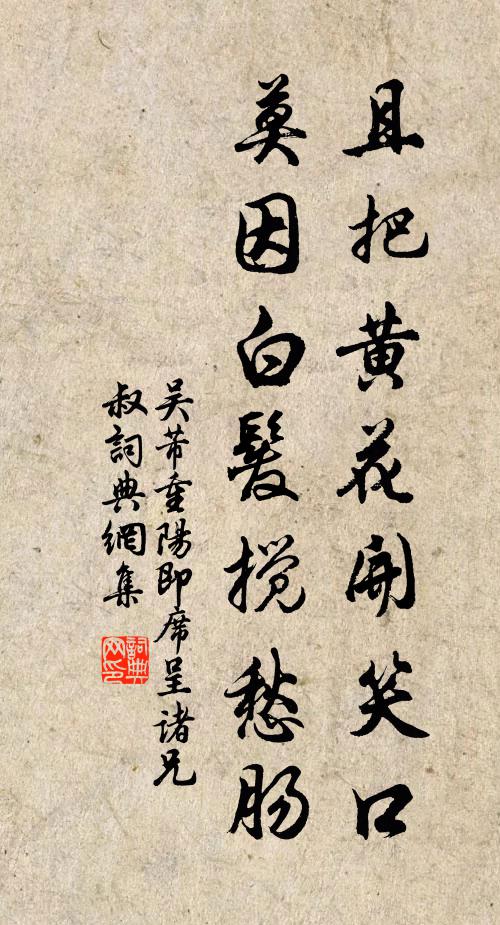 且把黄花開笑口
莫因白髮搅愁肠
吴芾重陽即席呈诸兄
叔詞典網集
詞典
网印